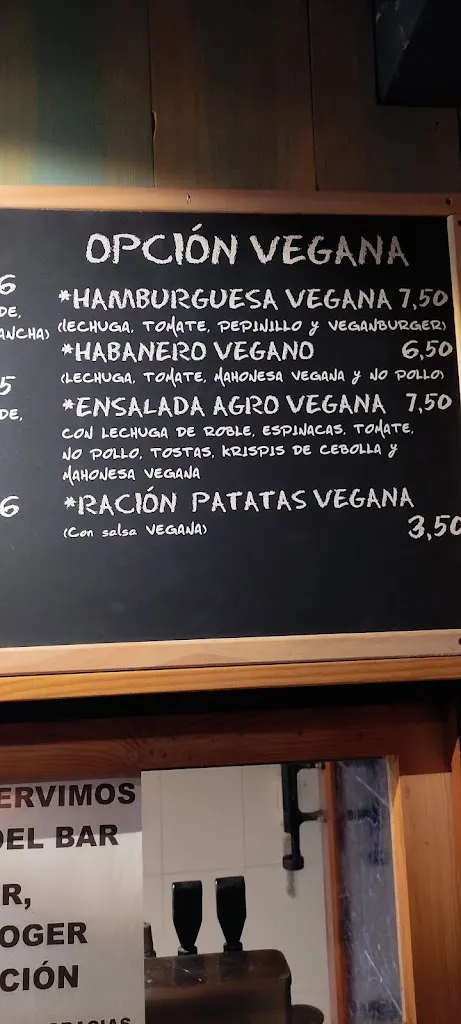 OPCIÓN VEGANA
6
DE,
ANCHA)
5
DE,
6
*HAMBURGUESA VEGANA 7,50
(LECHUGA, TOMATE, PEPINILLO y VEGANBURGER)
*HABANERO VEGANO 6,50
(LECHUGA, TOMATE, MAHONESA VEGANA y NO POLLO)
*ENSALADA AGRO VEGANA 7,50
CON LECHUGA DE ROBLE, ESPINACAS, TOMATE,
NO POLLO, TOSTAS, KRISPIS DE CEBOLLA y
MAHONESA VEGANA
*RACIÓN PATATAS VEGANA
(Con salsa VEGANA) 3,50
ERVIMOS
DEL BAR
R,
OGER
CIÓN
GRACIAS